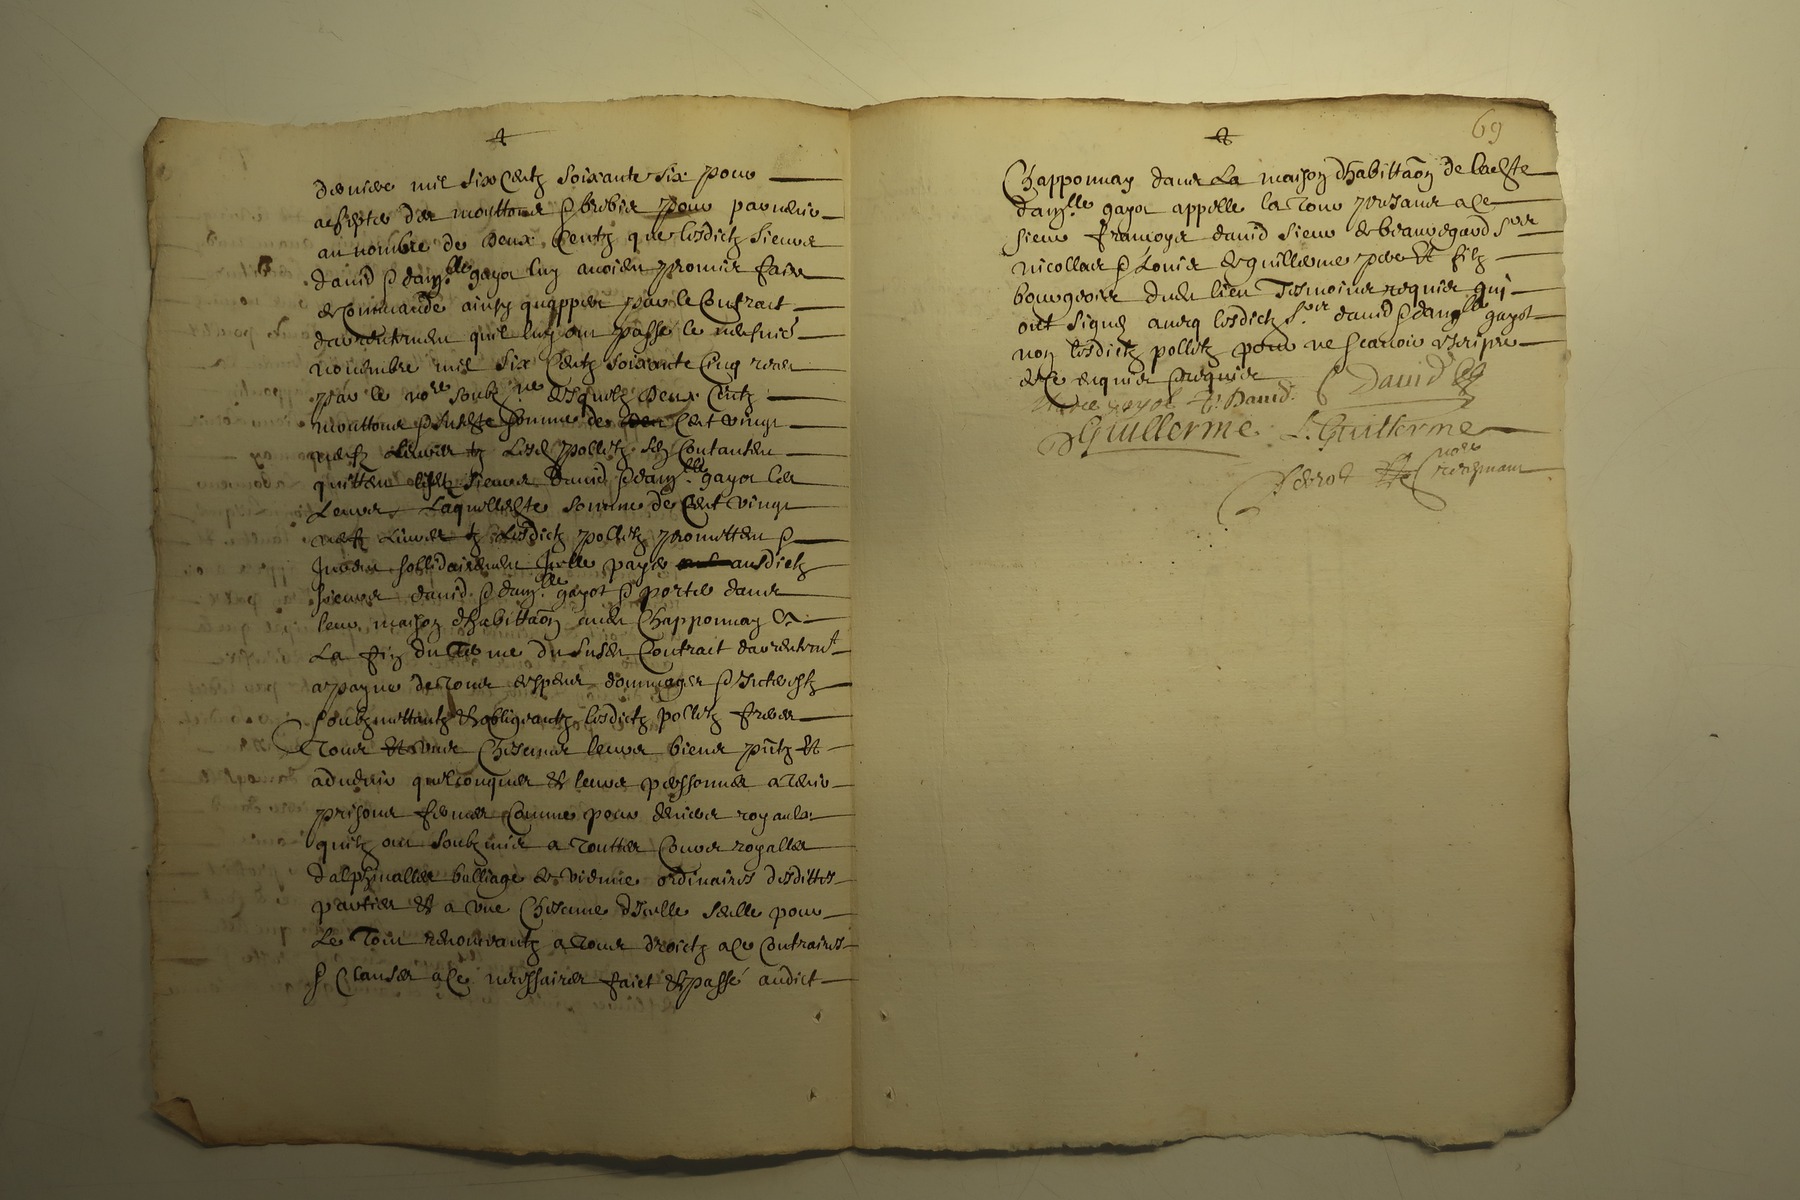 derniere mil six Centz soixante six pour
achepter des mouttons & brebis pour parvenir
au nombre de deux Centz que lesdictz sieurs
david & dam.lle gayot luy avoient promis faire
de Commande ainsy quappert par le Contract
darrentement quil luy ont passé le
novembre mil six Centz soixante Cinq receu
par le no.re soubz.ne desquelz deux Centz
mouttons & susdte somme de Cent vingt
neuf Livres tz Lesd pollitz se Contantent
quittent lesdtz sieurs David & dam.lle gayot Les
Leurs Laquelledte somme de Cent vingt
neuf Livres tz Lesdictz pollitz promettent &
Jurent sollidairement Jcelle payer ausdictz
sieurs david & dam.lle gayot & porter dans
leur maison dhabittaõn audt Chapponnay &
La fin du Terme du susdt Contrait darrentemt
a payne de Tous despens dommages & Interestz
soubzmettantz & obligeantz lesdictz pollitz freres
Tous Chescuns leurs biens pñtz et
advenir quelconques & leurs personnes a tenir
prisons fermes Comme pour deniers royaulx
quilz ont soubzmis a Touttes Cours royalles
dalphinalles balliage de vienne ordinaires desdittes
parties & a une Chescune dicelle seulle pour
Le Tout renonceantz a Tous droictz a Ce Contraires
& Clauses a Ce necessaires faict & passé audict
69
Chapponnay dans La maison dhabittaõn de ladte
dam.lle gayot appellé la Tour presans a Ce
sieur françoys david sieur de beauregard s.rs
nicollas & Louis de guillerme pere et filz
bourgeois dudt lieu Tesmoins requis qui
ont signé avecq lesdictz s.rs david & dam.lle gayot
non lesdictz pollitz pour ne scavoir escripre
de Ce enquis & requis
gayot David
David
Guillerme L. Guillerme
no.re